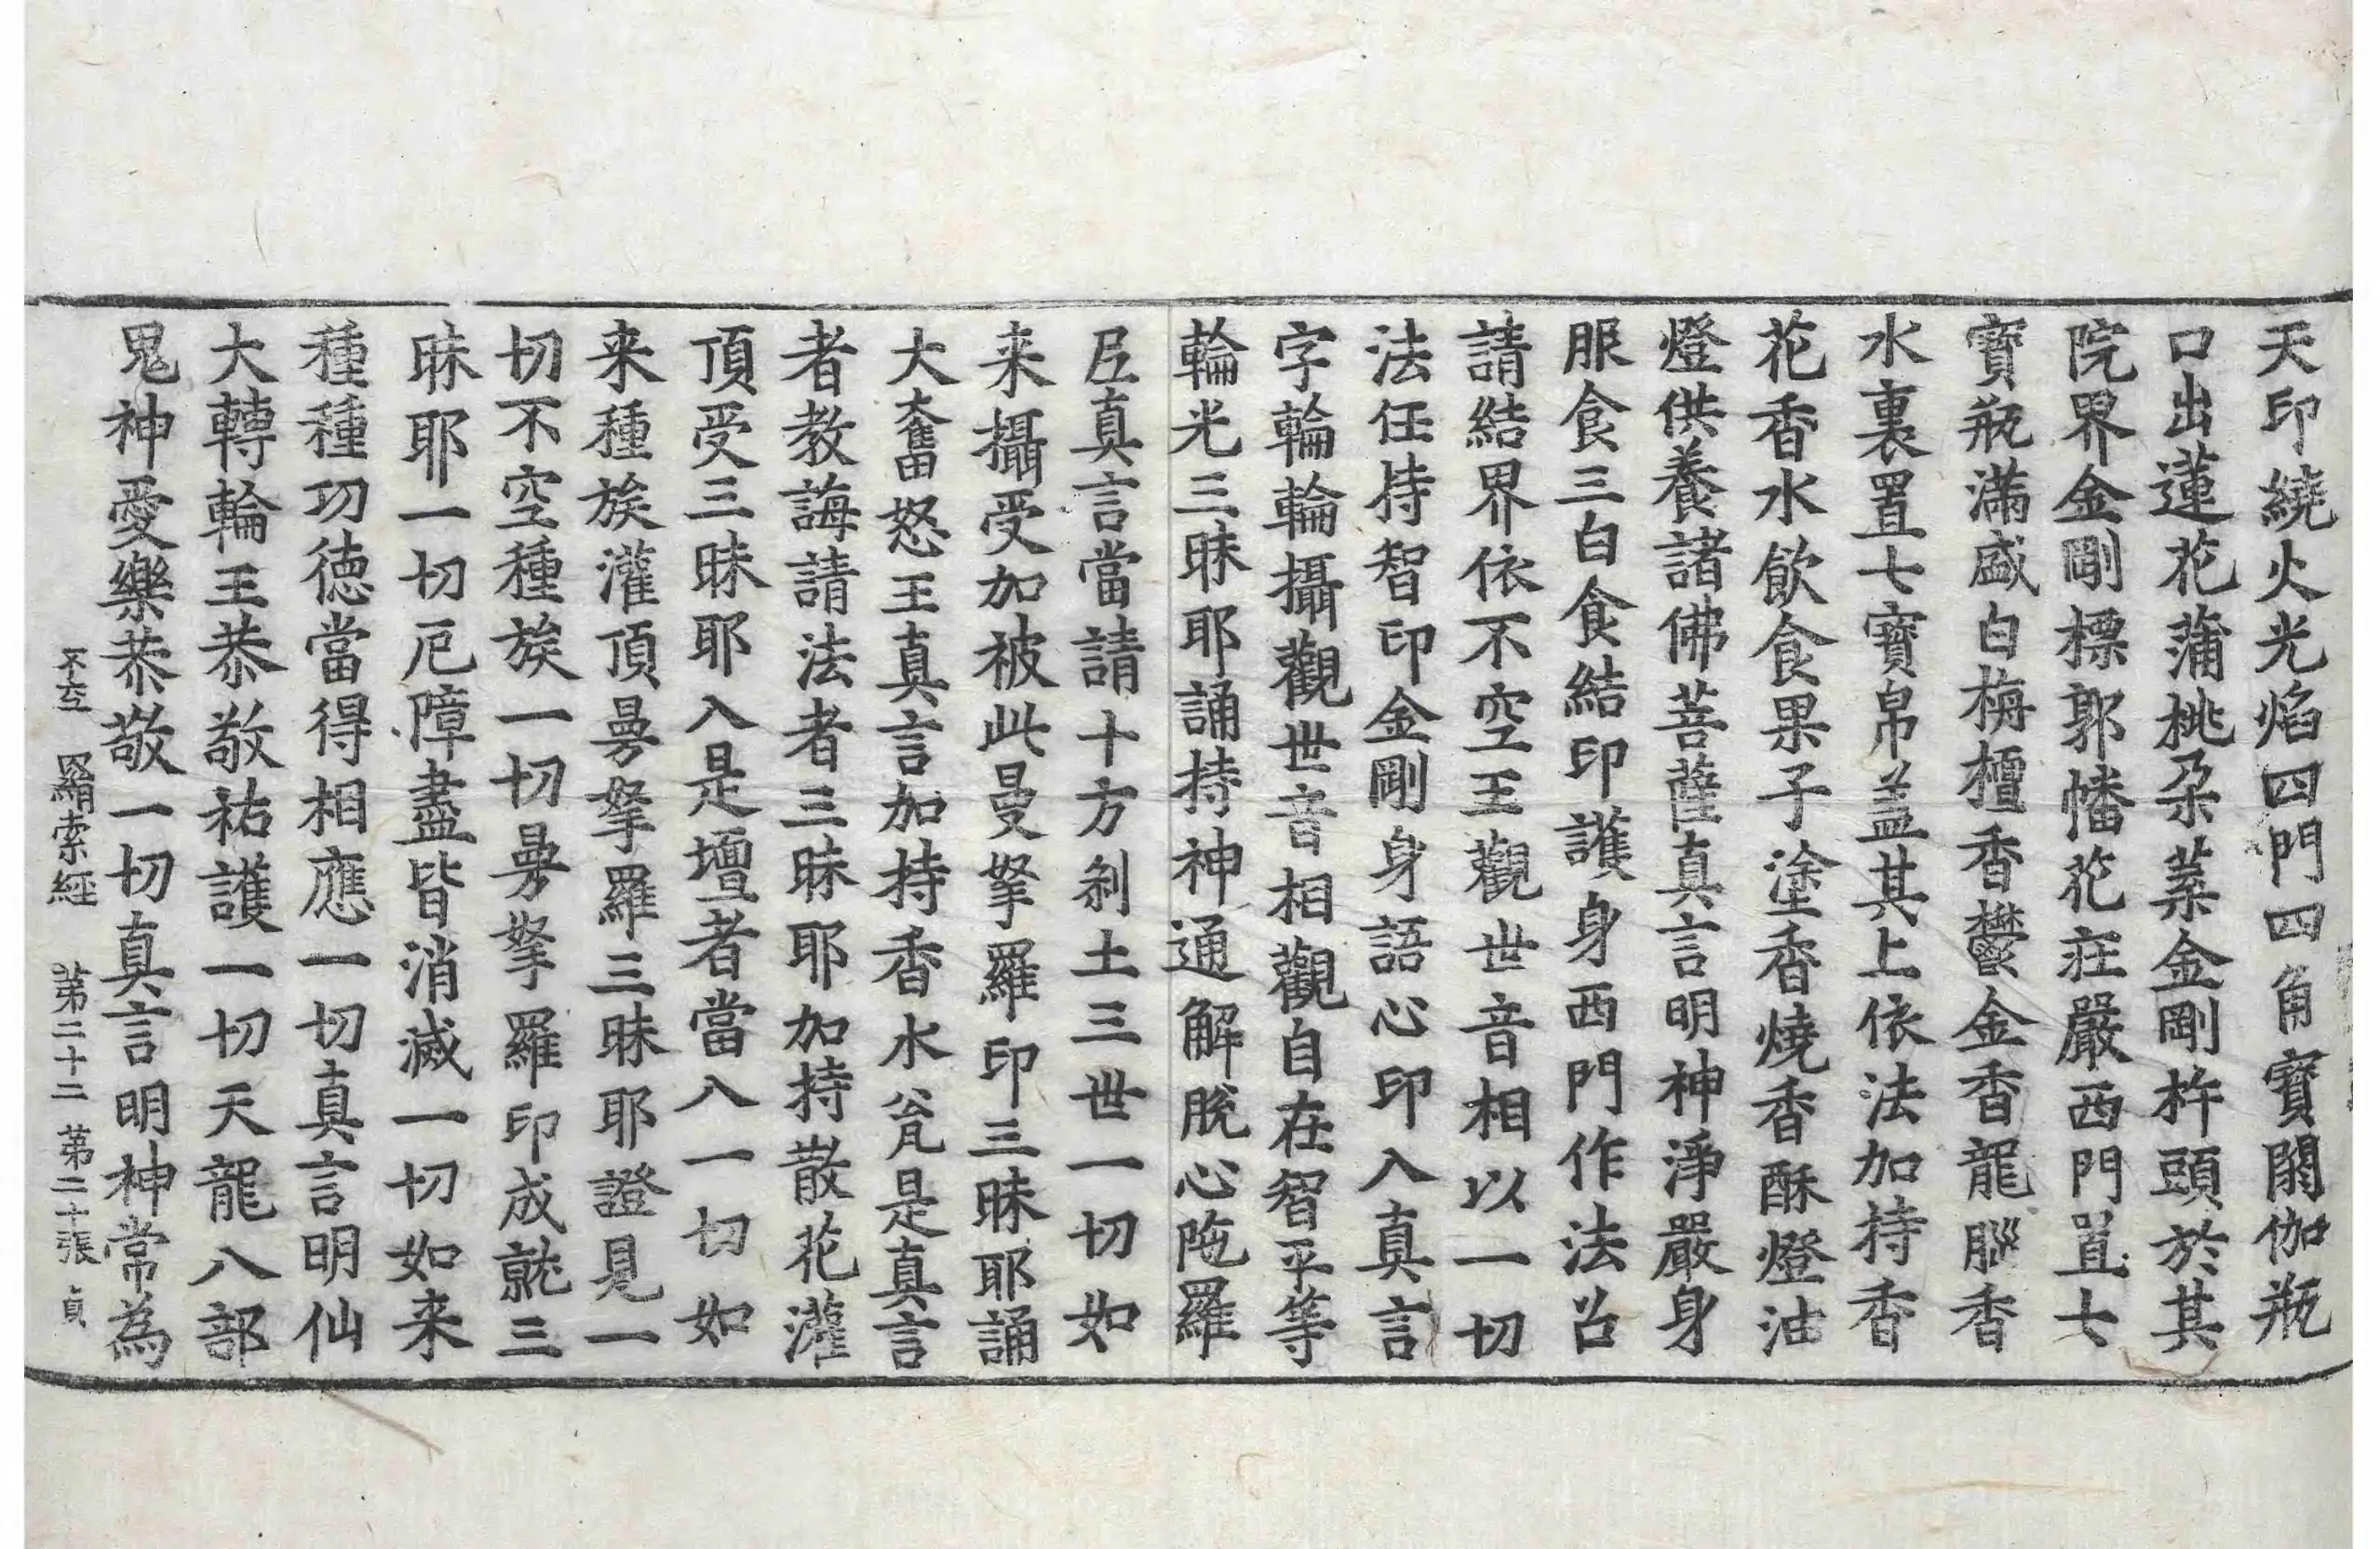 天印繞火光焰四門四角寶閼伽瓶
口出蓮花蒲桃朶葉金剛杵頭於其
院界金剛摽郭幡花莊嚴西門置七
寶瓶滿盛白栴檀香欝金香龍腦香
水裏置七寶帛盖其上依法加持香
花香水飲食果子塗香燒香酥燈油
燈供養諸佛菩薩真言明神淨嚴身
服食三白食結印護身西門作法召
請結界依不空王觀世音相以一切
法任持智印金剛身語心印入真言
字輪輪攝觀世音相觀自在智平等
輪光三昧耶誦持神通解脫心陁羅
𡰱真言當請十方剎土三世一切如
来攝受加被此曼拏羅印三昧耶誦
大奮怒王真言加持香水瓮是真言
者教誨請法者三昧耶加持散花灌
頂受三昧耶入是壇者當入一切如
来種族灌頂曼拏羅三昧耶證見一
切不空種族一切曼拏羅印成就三
昧耶一切厄障盡皆消滅一切如来
種種功德當得相應一切真言明仙
大轉輪王恭敬祐護一切天龍八部
鬼神愛樂恭敬一切真言明神常為
不空 羂索經 第二十二 第二十張 貞